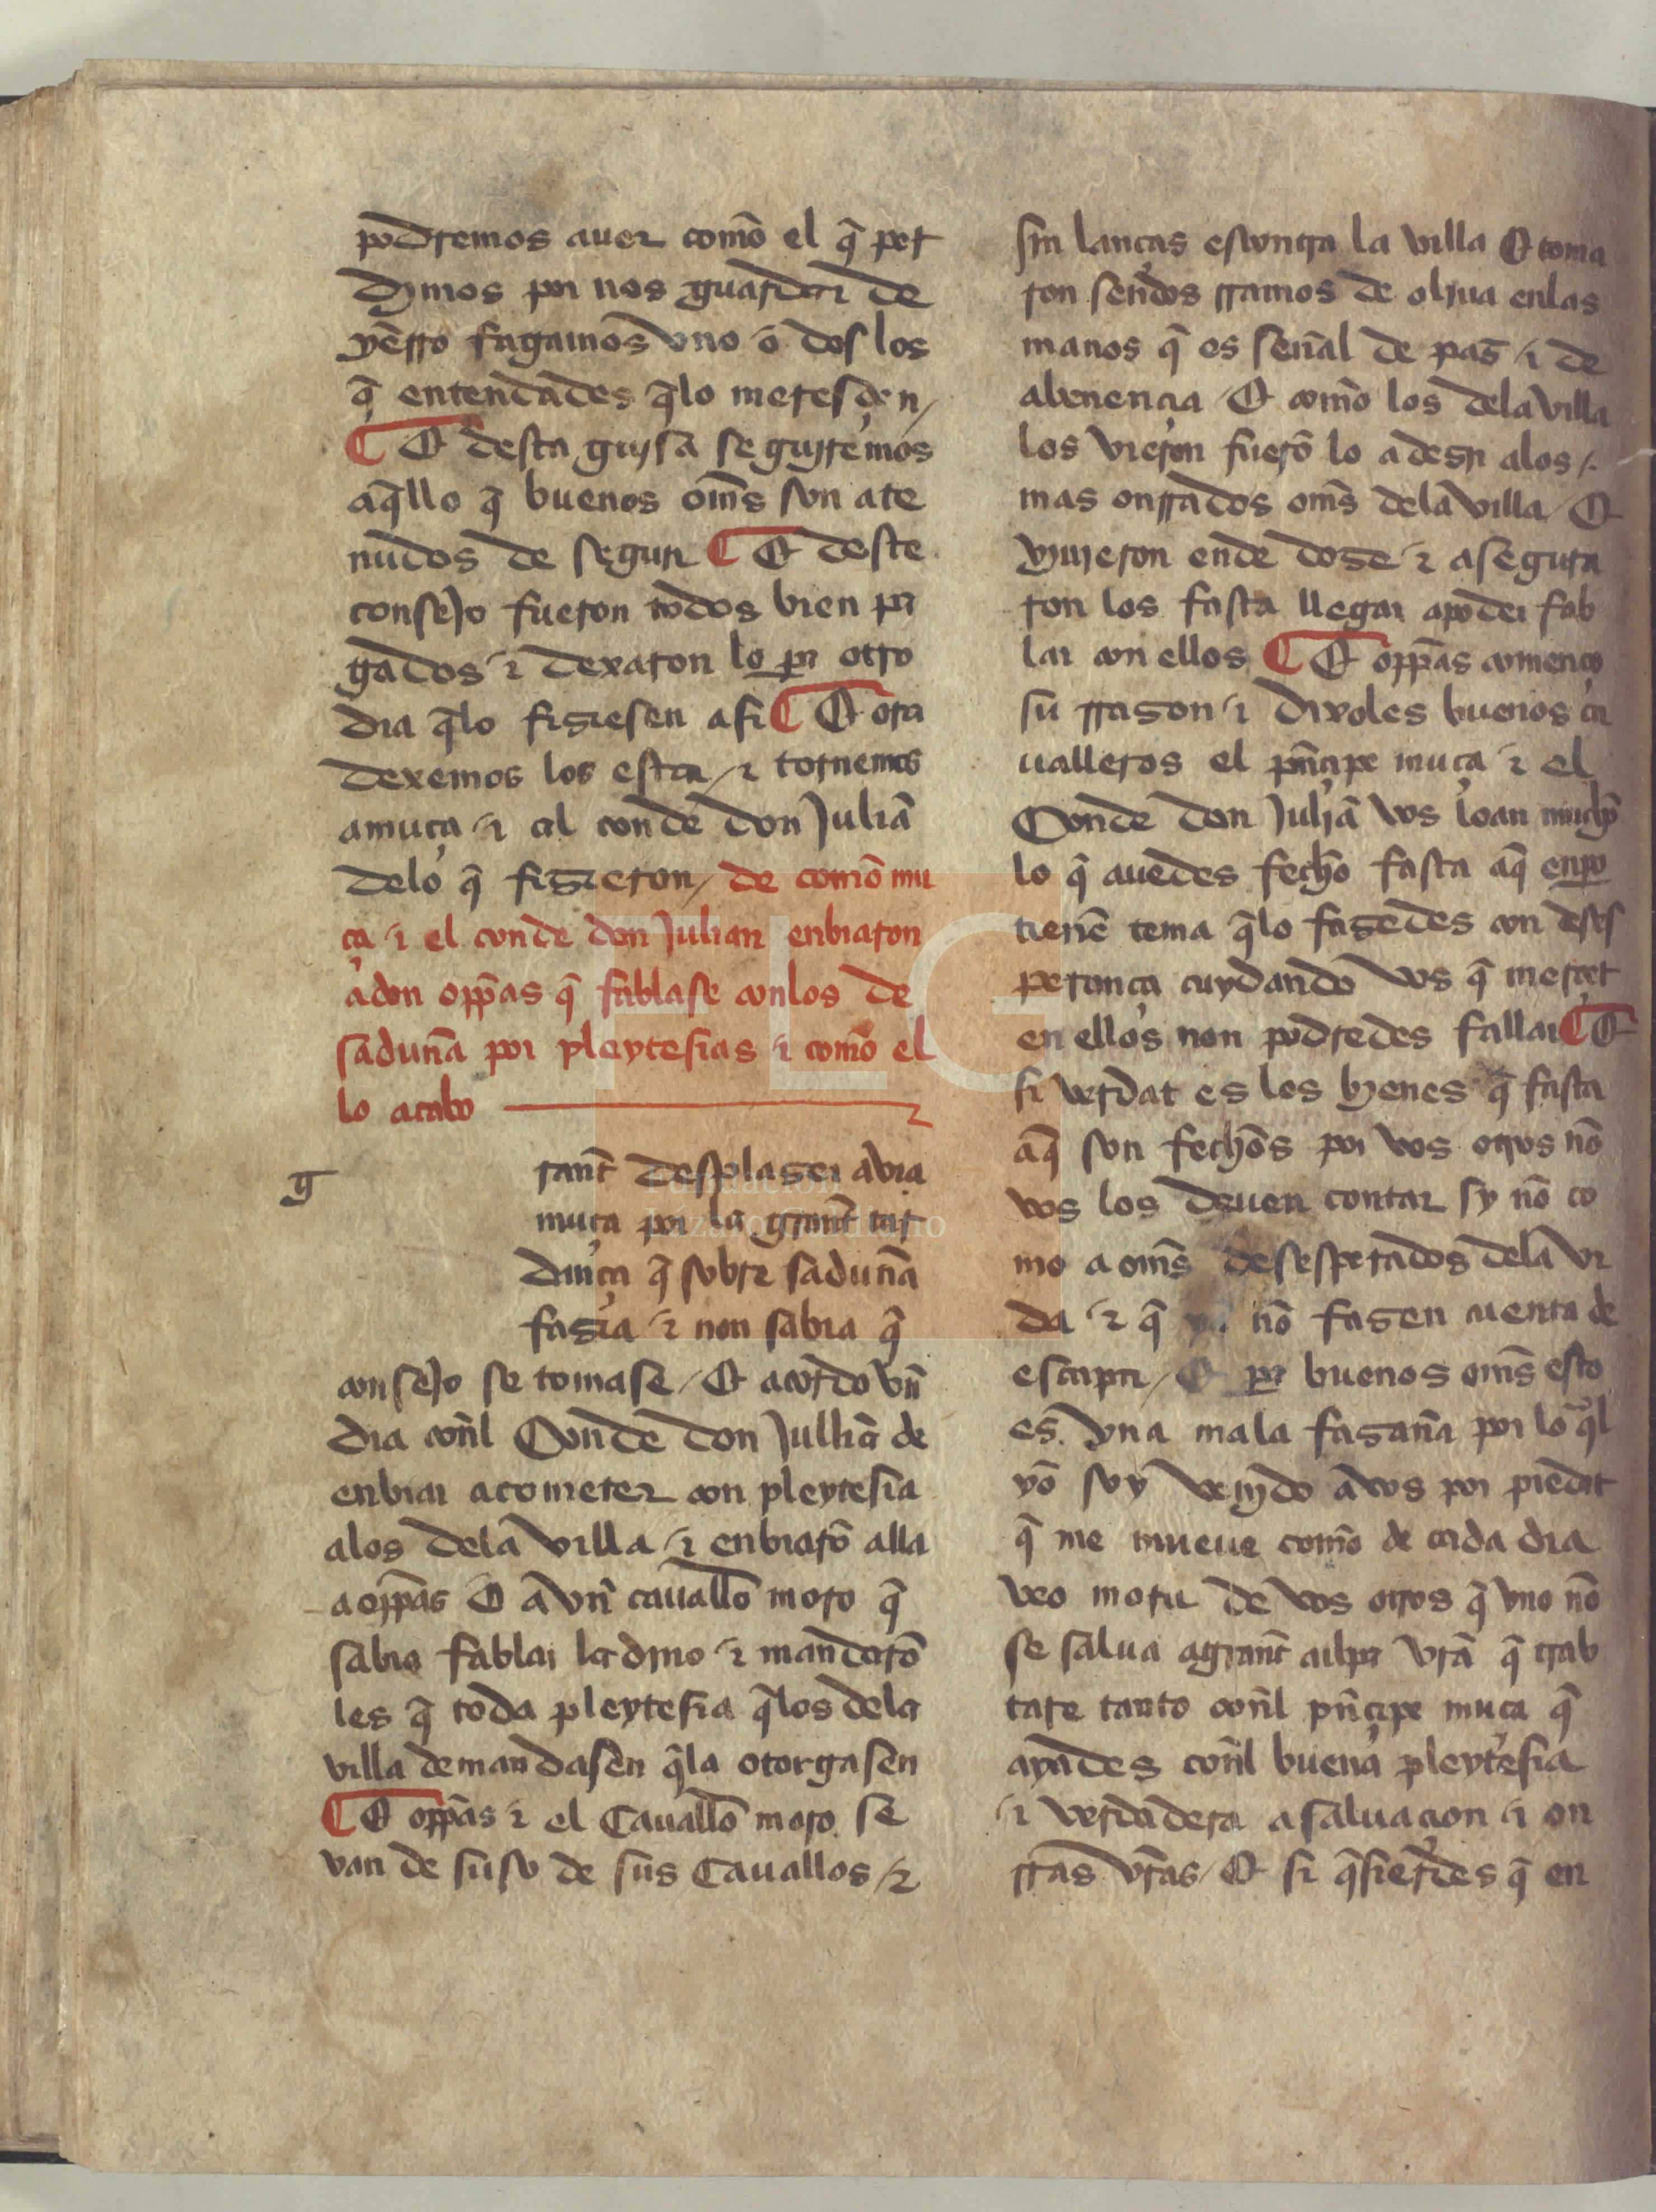 podremos auer comō el q̄ per
dymos por nos guardar de
yērro fagamos vno o dos los
q̄ entendades q̄lo meresçen /
¶ Et desta guisa seguiremos
aq̄llo q̄ buenos om̄s son ate
nudos de seguir ¶ Et deste
consejo fueron todos bien pa
gados ⁊ dexaron lo pa otro
dia q̄lo fiziesen asi ¶ Et ora
dexemos los estar / ⁊ tornemos
amuça ⁊ al conde don Juliā
delo q̄ fizieron / de comō mu
ça ⁊ el conde don Julian enbiaron
a don opp̄as q̄ fablase conlos de
saduñā por pleytesias ⁊ comō el
lo acabo
g
rant̄ desplazer avia
muça por la grant̄ tar
dança q̄ sobre saduñā
fazia ⁊ non sabia q̄
consejo se tomase / Et acordo vn̄
dia con̄l Conde don Julliā de
enbiar acometer con pleytesia
alos dela villa ⁊ enbiarō alla
a opp̄as O a vn̄ cauallō moro q̄
sabia fablar ladino ⁊ mandarō
les q̄ toda pleytesia q̄los dela
villa demandasen q̄la otorgasen
¶ Et opp̄as ⁊ el Cauallō moro se
van de suso de sus Cauallos / ⁊
sin lanças escontra la villa Et toma
ron sendos rramos de oliua enlas
manos q̄ es señal de paz ⁊ de
abenencia / Et comō los dela villa
los vieron fuerō lo a dezir alos /.
mas onrrados om̄s dela villa / Et
vinieron ende doze ⁊ asegura
ron los fasta llegar apoder fab
lar con ellos ¶ Et opp̄as començo
su rrazon ⁊ dixoles buenos ca
ualleros el pn̄çipe muça ⁊ el
Conde don Juliā vos loan muchō
lo q̄ auedes fechō fasta aq̄ enpo
tienē tema q̄lo fazedes con deses
perança cuydando vos q̄ merçet
en ellos non podredes fallar ¶ Et
si verdat es los byenes q̄ fasta
aq̄ son fechōs por vos otros nō
vos los deuen contar sy nō co
mo a om̄s desesperados dela vi
da ⁊ q̄ ya nō fazen cuenta de
escapar / Et pa buenos om̄s esto
es vna mala fazaña por lo q̄l
yō soy venjdo a vos por piedat
q̄ me mueue comō de cada dia
veo morir de vos otros q̄ vno nō
se salua a grant̄ culpa vrā q̄ trab
tare tanto con̄l pn̄çipe muça q̄
ayades con̄l buena pleytesia
⁊ verdadera a saluacion ⁊ on
rras vrās / Et si q̄sierdes q̄ en